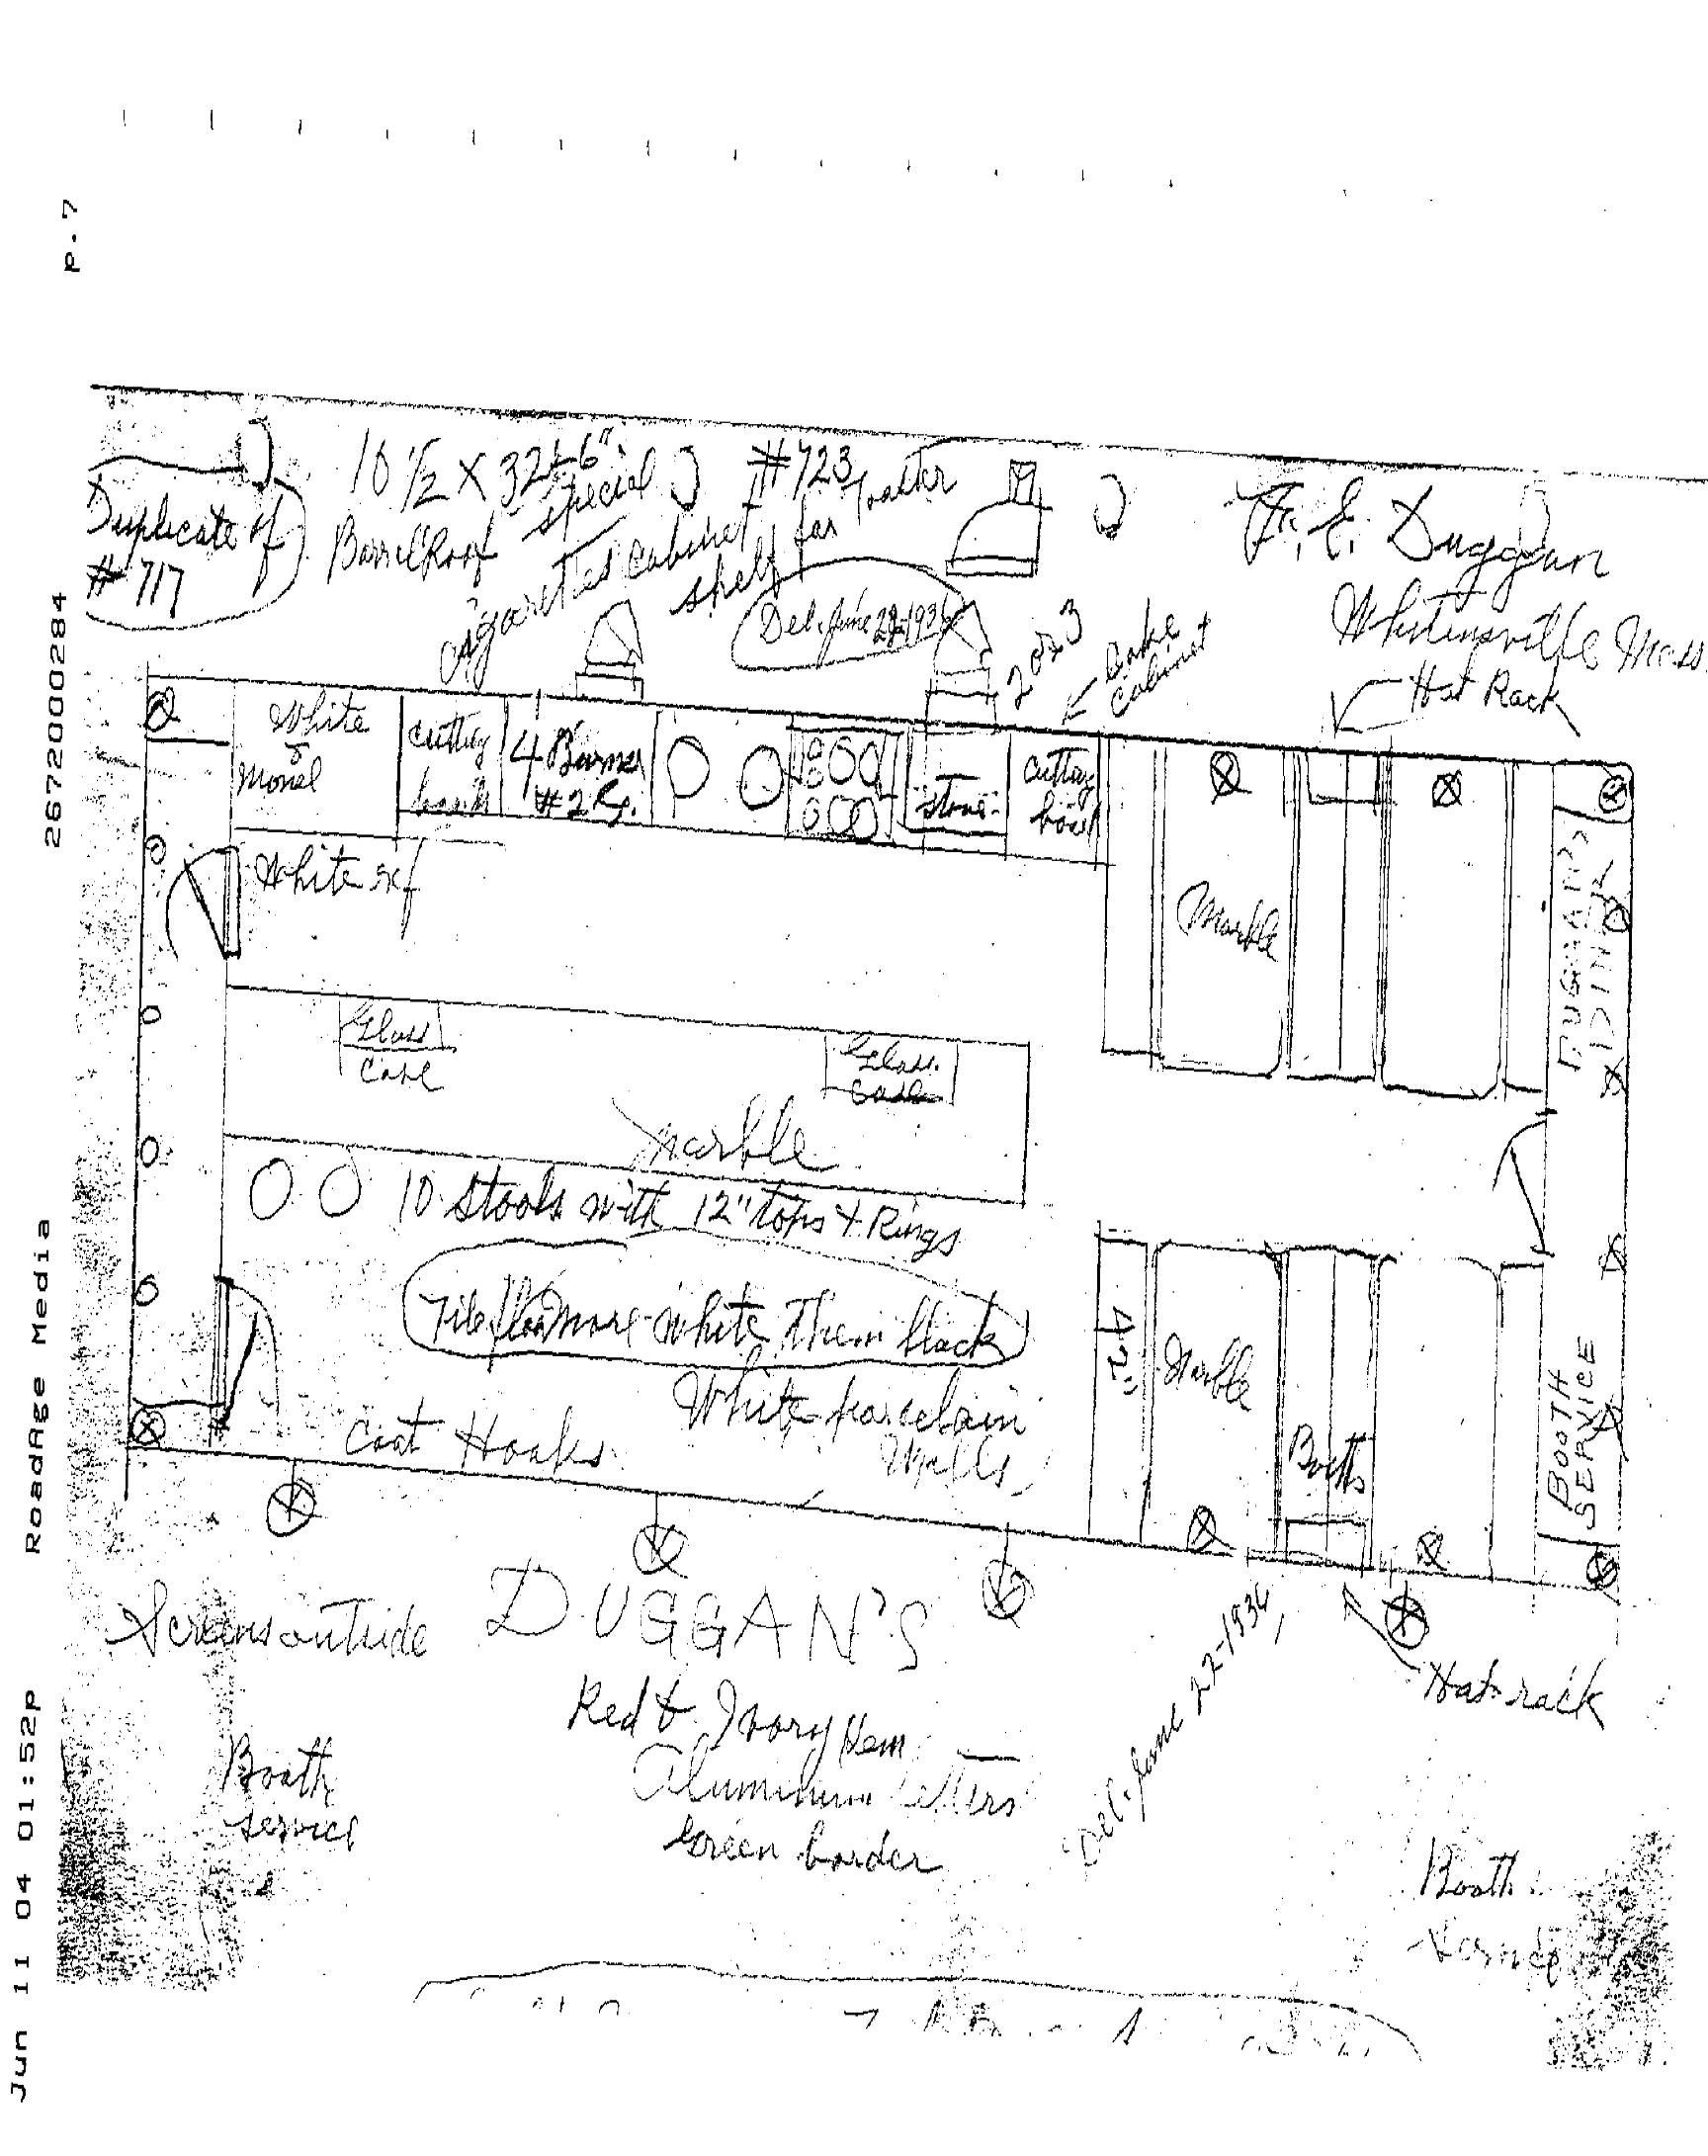 P.7
2672000284
RoadAge Media
Jun 11 04 01:52p
Duplicate of
# 717
10 1/2 X 32'-6"
special
Barrel Roof
#723
cigarettes cabinet
shelf for Toaster
Del. June 22-1936
F. E. Duggan
Whitinsville Mass
Hat Rack
2 or 3
cake
cabinet
White
&
Monel
cutting
board
4 Burner
#2 Rg.
Stone
cutting
board
White ref
Marble
DUGGAN'S
DINER
Glass
Case
Glass
Case
Marble
10 Stools with 12" tops & Rings
Tile floor more white Then black
White porcelain
Walls
Coat Hooks
42"
Marble
Booths
BOOTH
SERVICE
Screens outside
DUGGAN'S
Red & Ivory
Aluminum letters
Green border
Del. June 22-1936
Hat rack
Booth
service
Booth